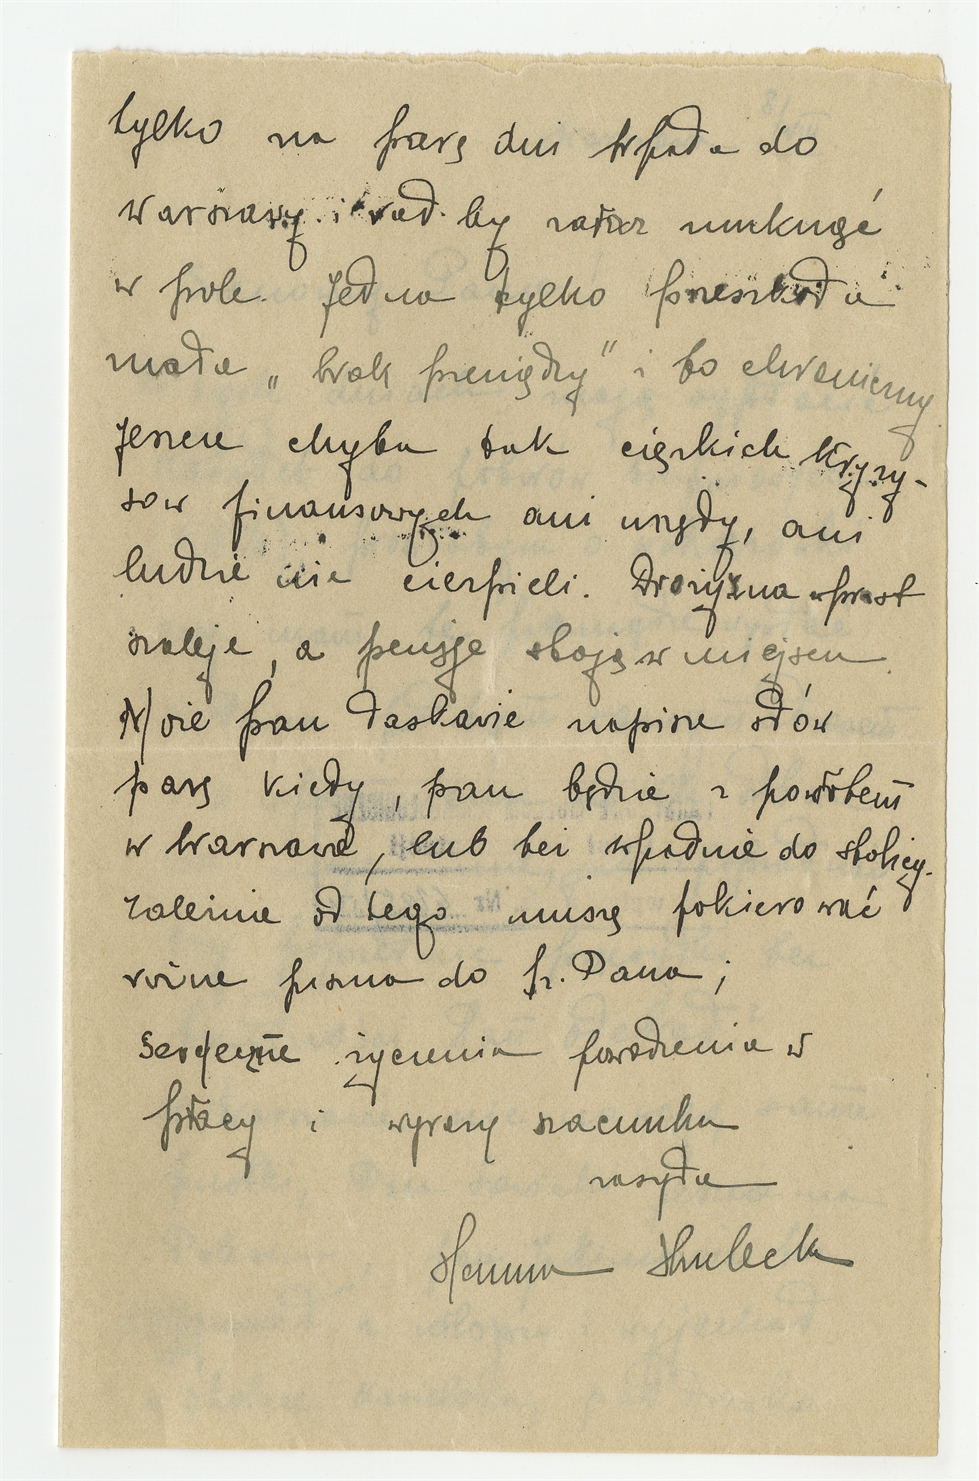 tylko na parę dni wpada do
Warszawy i rad by zaraz umknąć
w pole. Jedna tylko przeszkoda
mała „brak pieniędzy” i to chroniczny
jeszcze chyba tak ciężkich kryzy-
sów finansowych ani urzędy, ani
ludzie nie cierpieli. Drożyzna wprost
szaleje, a pensje stoją w miejscu.
Może pan łaskawie napisze słów
parę kiedy, pan będzie z powrotem
w Warszawie, lub też wpadnie do stolicy.
zależnie od tego muszę pokierować
różne pisma do p. Pana;
Serdeczne życzenia powodzenia w
pracy i wyrazy szacunku
zasyła
Hanna